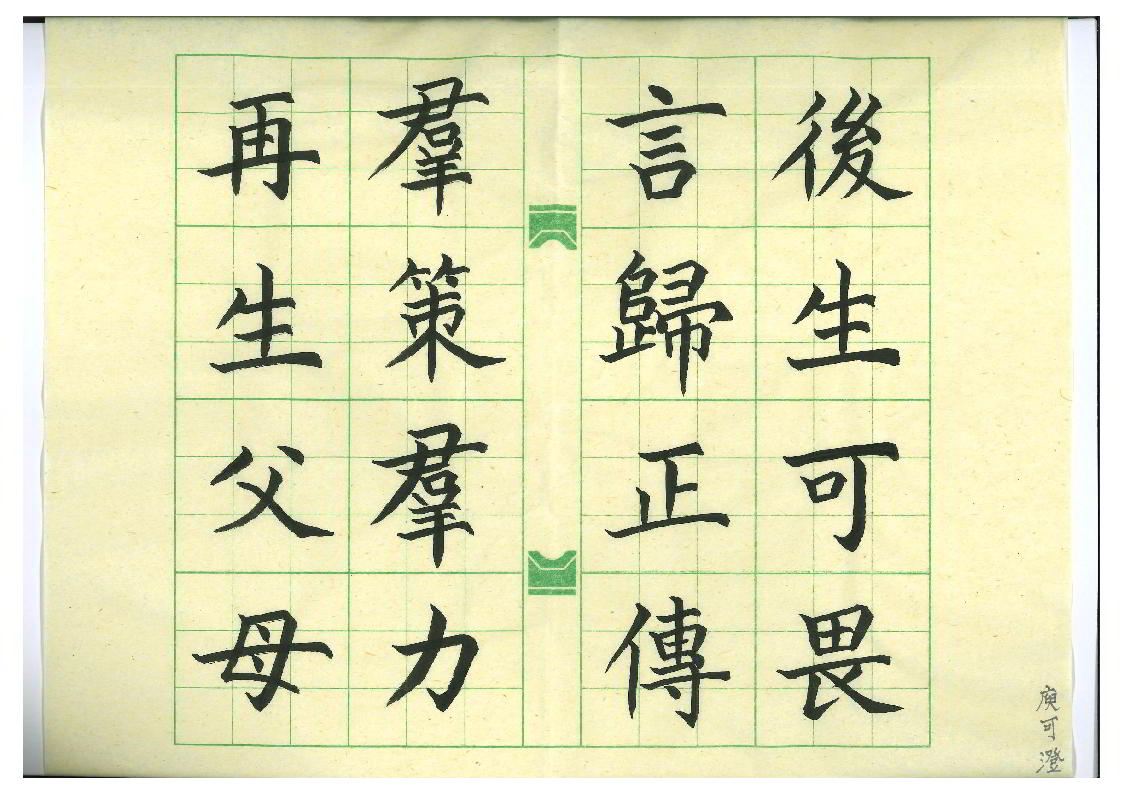 後生可畏
言歸正傳
羣策羣力
再生父母
庾可澄